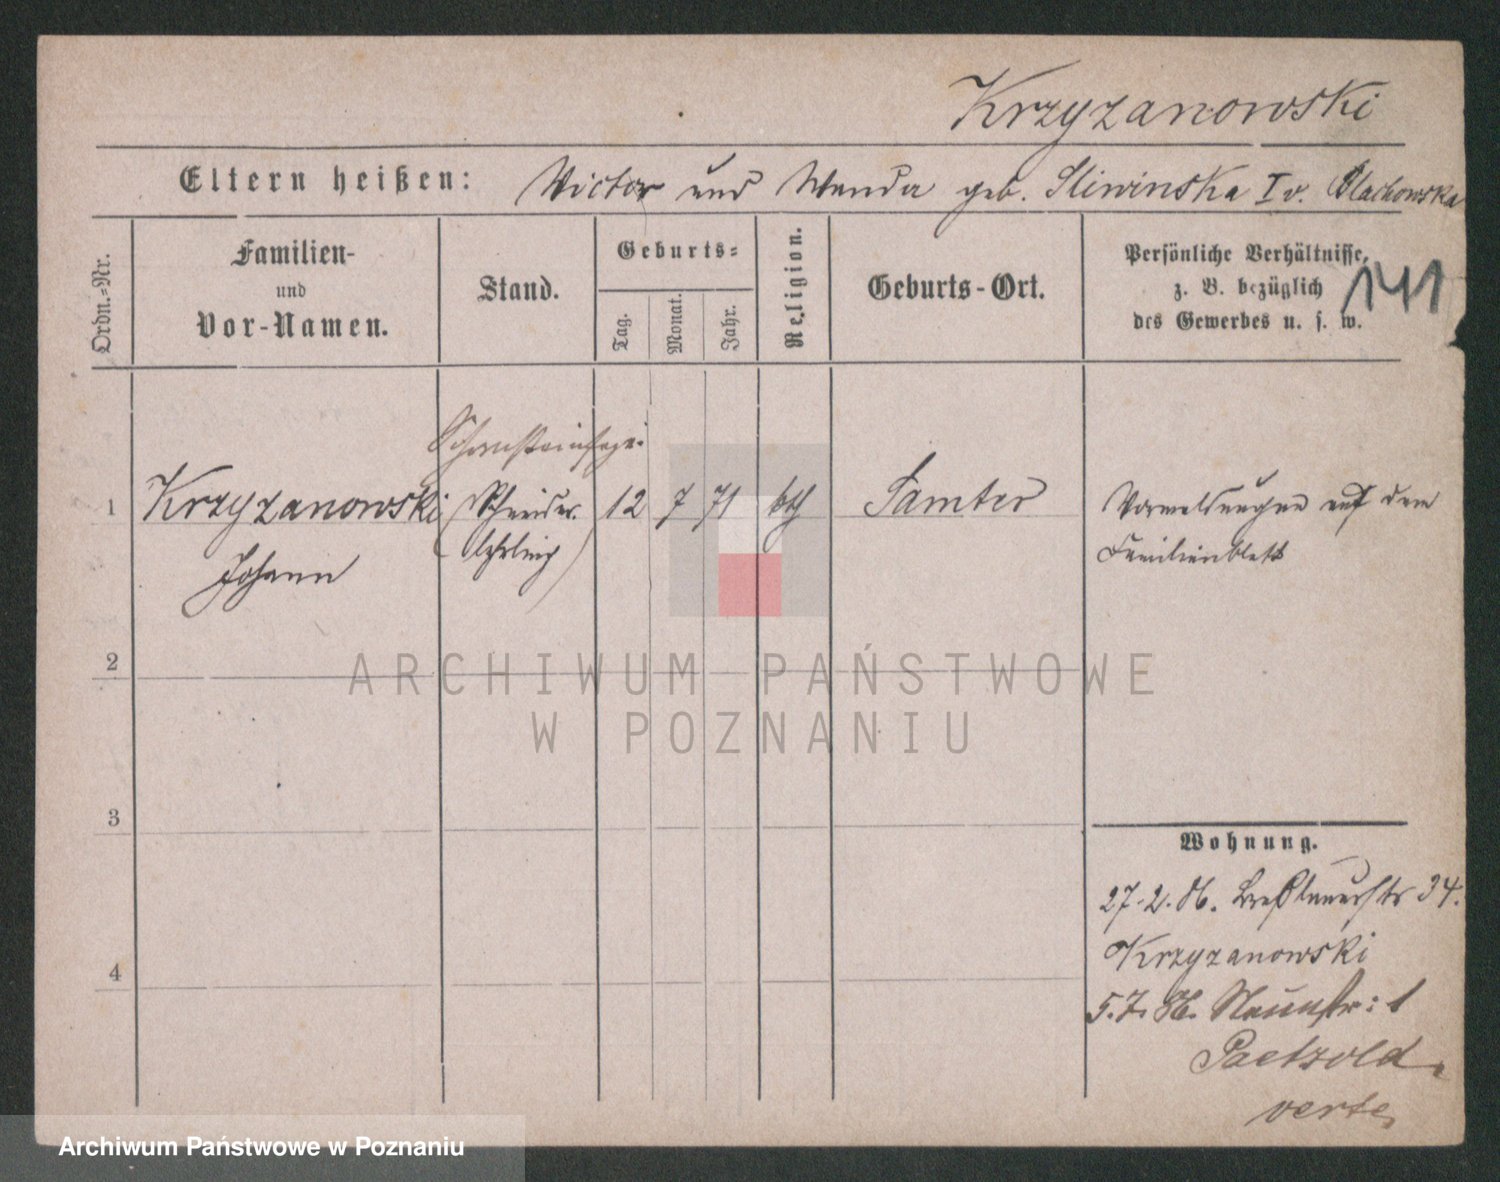 Krzyzanowski
Eltern heißen: Victor und Wanda geb. Sliwinska I v. Blachowska
Ordn.-Nr.
Familien-
und
Vor-Namen.
Stand.
Geburts-
Tag.
Monat.
Jahr.
Religion.
Geburts-Ort.
Persönliche Verhältnisse,
z. B. bezüglich
des Gewerbes u. s. w.
141
Schornsteinfeger
1 Krzyzanowski (Schneider- 12 7 71 kth Samter Vormeldungen auf dem
Johann lehrling) Familienblatt
2
3
Wohnung.
27.2.86. Breslauerstr 34.
Krzyzanowski
4
5.7. 86. Neuestr: 1
Paetzold
verte
ARCHIWUM PAŃSTWOWE
W POZNANIU
Archiwum Państwowe w Poznaniu